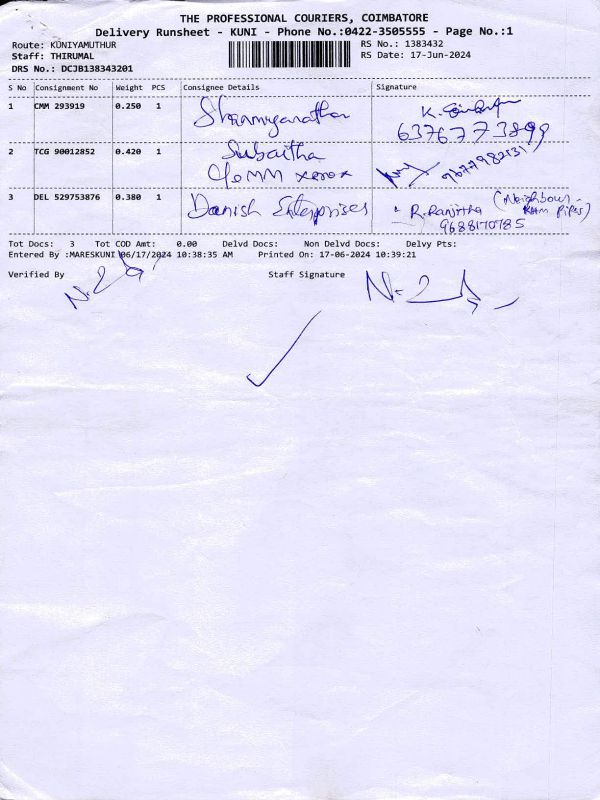 THE PROFESSIONAL COURIERS, COIMBATORE
Delivery Runsheet - KUNI - Phone No.:0422-3505555 - Page No.:1
Route: KUNIYAMUTHUR RS No.: 1383432
Staff: THIRUMAL RS Date: 17-Jun-2024
DRS No.: DCJB138343201
S No Consignment No Weight PCS Consignee Details Signature
1 CMM 293919 0.250 1 K.
6376773899
2 TCG 90012852 0.420 1 Subaitha
xerox
3 DEL 529753876 0.380 1 Danish Enterprises R. Ranjitha (Neighbour -
Pipes)
9688170785
Tot Docs: 3 Tot COD Amt: 0.00 Delvd Docs: Non Delvd Docs: Delvy Pts:
Entered By :MARESKUNI 06/17/2024 10:38:35 AM Printed On: 17-06-2024 10:39:21
Verified By Staff Signature